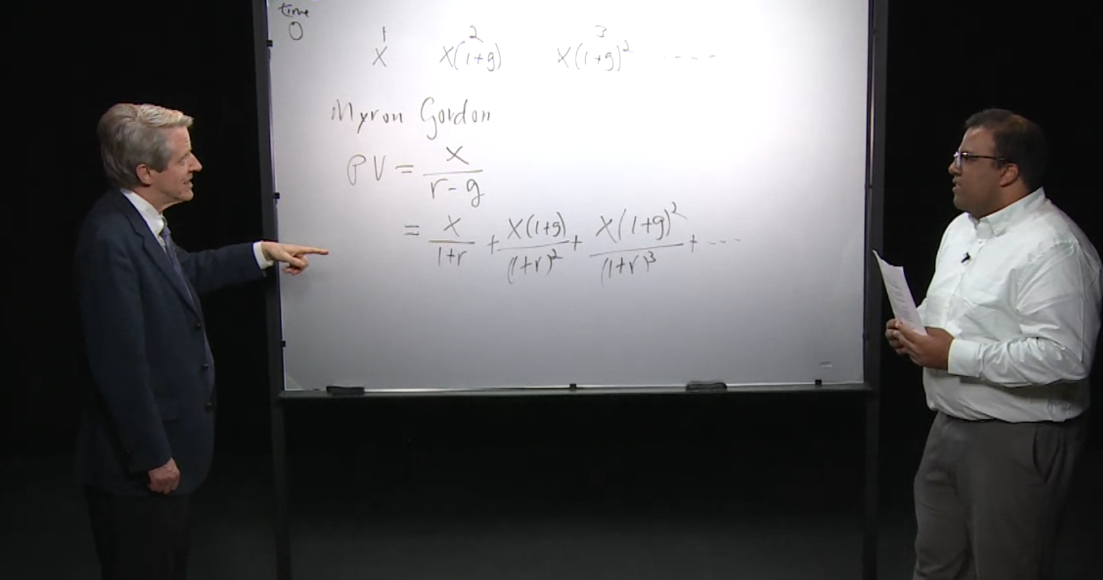 time
0 1 2 3
X X(1+g) X(1+g)² ----
Myron Gordon
PV = X/(r-g)
= X/(1+r) + X(1+g)/(1+r)² + X(1+g)²/(1+r)³ + ---